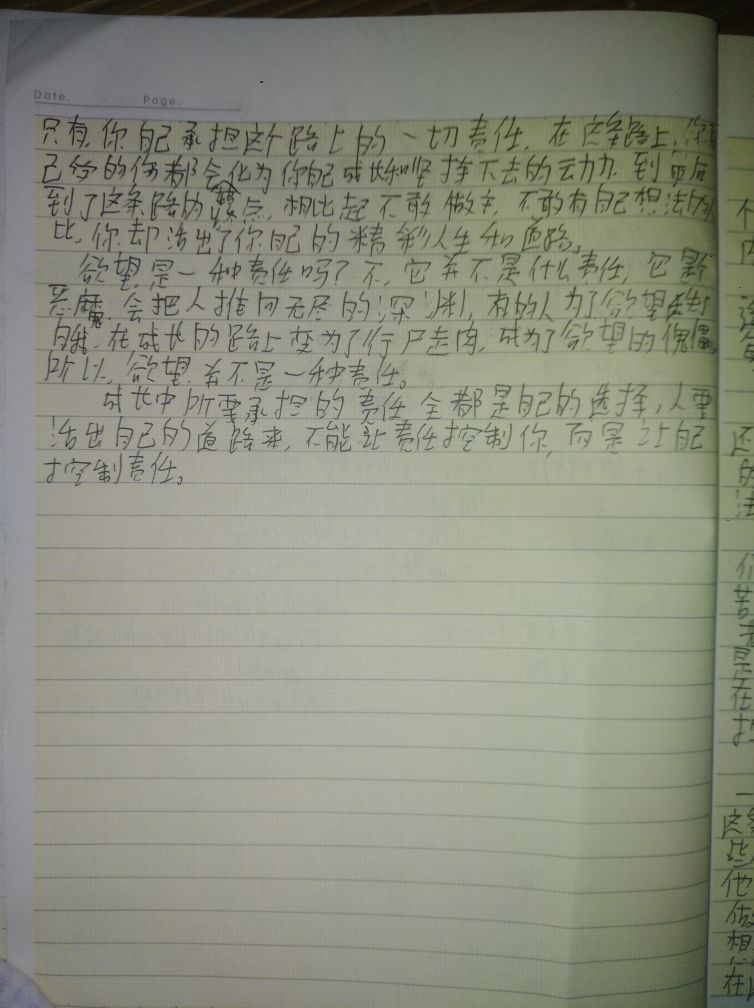 Date.
Page.
只有你自己承担这个路上的一切责任，在这条路上，你自
己受的伤都会化为你自己成长和坚持下去的动力，到最后
到了这条路的终点，相比起不敢做主，不敢有自己想法的人
比，你却活出了你自己的精彩人生和道路。
欲望是一种责任吗？不，它并不是什么责任，它是
恶魔，会把人推向无尽的深渊，有的人为了欲望
自我，在成长的路上变为了行尸走肉，成为了欲望的傀儡，
所以，欲望并不是一种责任。
成长中所要承担的责任全都是自己的选择，人要
活出自己的道路来，不能让责任控制你，而是让自己
控制责任。
还
的
法
是
在
一
他
做
相
在